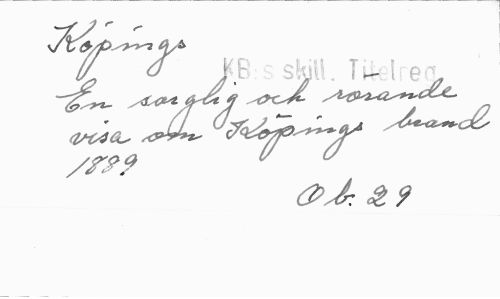 Köpings
KB:s skill. Titelreg
En sorglig och rörande
visa om Köpings brand
1889
O b. 29